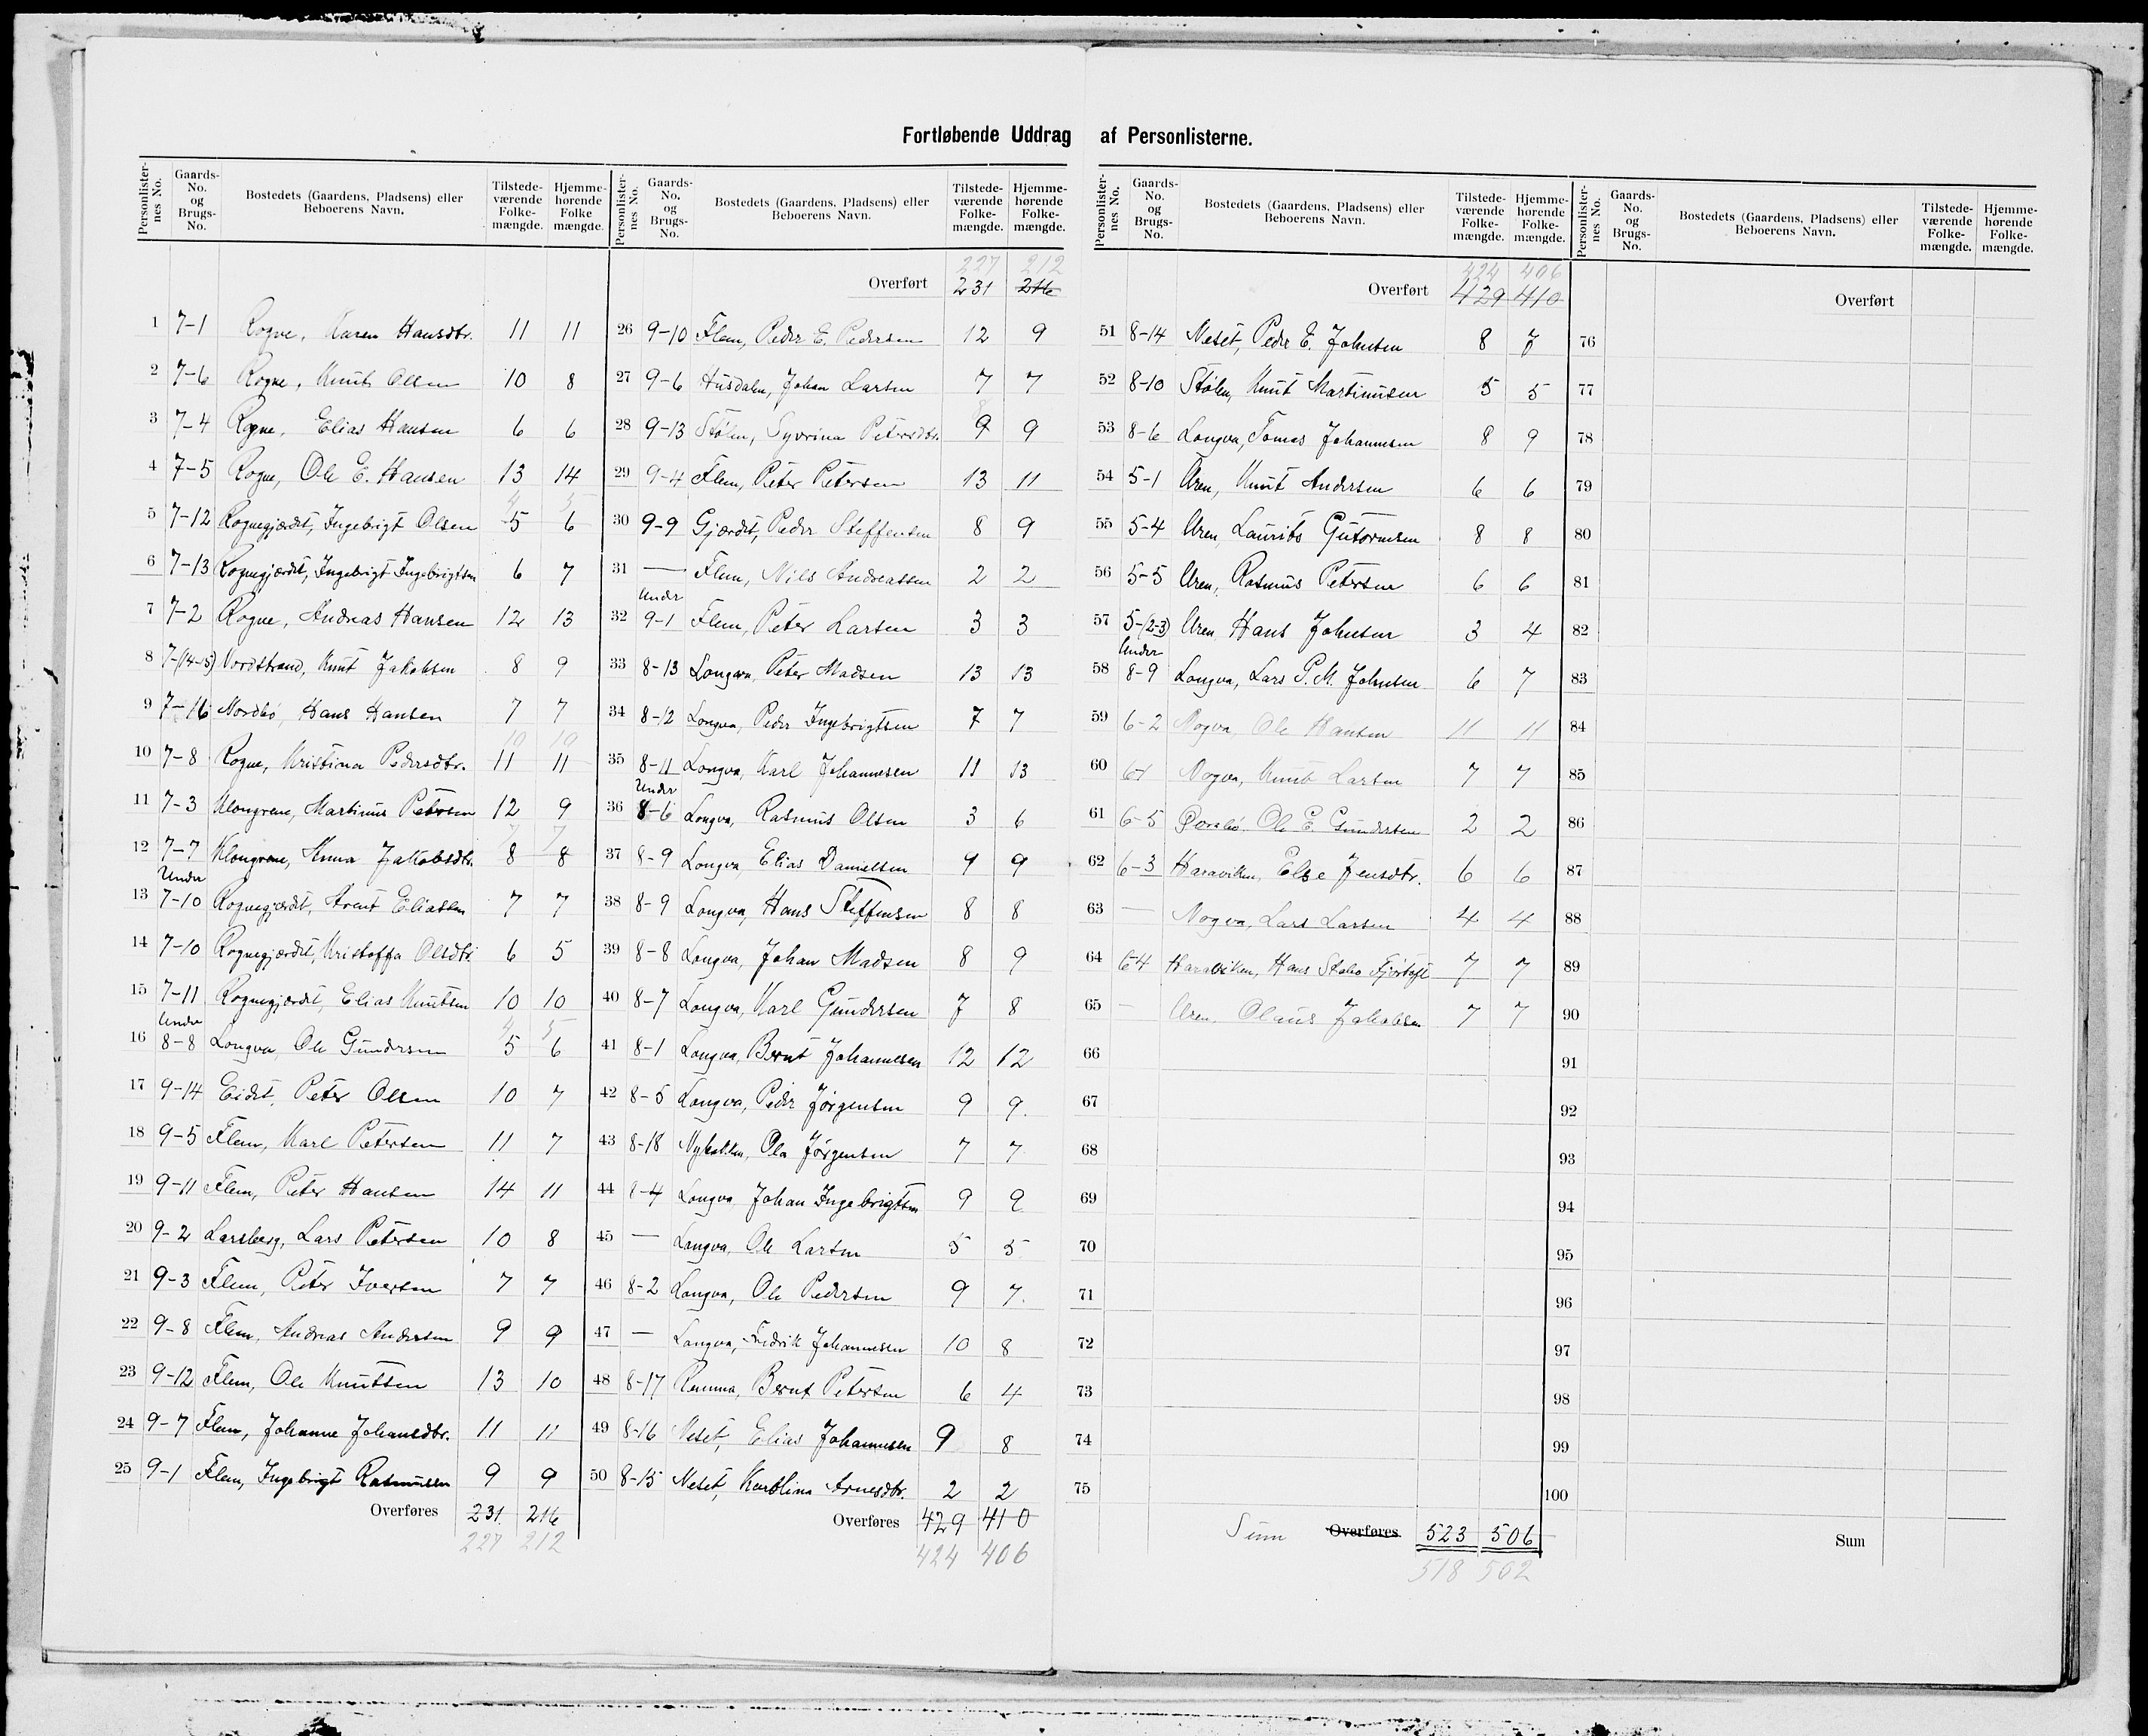 Fortløbende Uddrag af Personlisterne.
Personlister-nes No. Gaards-No. og Brugs-No. Bostedets (Gaardens, Pladsens) eller Beboerens Navn. Tilstede-værende Folke-mængde. Hjemme-hørende Folke mængde.
1 7-1 Rogne, Karen Hansdtr. 11 11
2 7-6 Rogne, Knut Olsen 10 8
3 7-4 Rogne, Elias Hansen 6 6
4 7-5 Rogne, Ole E. Hansen 13 14
4 5
5 7-12 Rognegjærdet, Ingebrigt Olsen 5 6
6 7-13 Rognegjærdet, Ingebrigt Ingebrigtsen 6 7
7 7-2 Rogne, Andreas Hansen 12 13
8 7-(14-15) Nordstrand, Knut Jakobsen 8 9
9 7-16 Nordbø, Hans Hansen 7 7
10 10
10 7-8 Rogne, Kristina Pedersdtr. 11 11
11 7-3 Klongrem, Martinus Petersen 12 9
7 7
12 7-7 Klongrem, Anna Jakobsdtr. 8 8
Under
13 7-10 Rognegjærdet, Arent Eliassen 7 7
14 7-10 Rognegjærdet, Kristoffa Olsdtr. 6 5
15 7-11 Rognegjærdet, Elias Knutsen 10 10
Under 4 5
16 8-8 Longva, Ole Gundersen 5 6
17 9-14 Eidet, Peter Olsen 10 7
18 9-5 Flem, Karl Petersen 11 7
19 9-11 Flem, Peter Hansen 14 11
20 9-2 Larsberg, Lars Petersen 10 8
21 9-3 Flem, Peter Iversen 7 7
22 9-8 Flem, Andreas Andersen 9 9
23 9-12 Flem, Ole Knutsen 13 10
24 9-7 Flem, Johanne Johansdtr. 11 11
25 9-1 Flem, Ingebrigt Rasmussen 9 9
Overføres 231 216
227 212
Personlister-nes No. Gaards-No. og Brugs-No. Bostedets (Gaardens, Pladsens) eller Beboerens Navn. Tilstede-værende Folke-mængde. Hjemme-hørende Folke-mængde.
227 212
Overført 231 216
26 9-10 Flem, Peder E. Pedersen 12 9
27 9-6 Husdalen, Johan Larsen 7 7
8
28 9-13 Stølen, Syvrina Petersdtr. 9 9
29 9-4 Flem, Peter Petersen 13 11
30 9-9 Gjærdet, Peder Steffensen 8 9
31 — Flem, Nils Andreassen 2 2
Under
32 9-1 Flem, Peter Larsen 3 3
33 8-13 Longva, Peter Madsen 13 13
34 8-12 Longva, Peder Ingebrigtsen 7 7
35 8-11 Longva, Karl Johannesen 11 13
Under
36 8-6 Longva, Rasmus Olsen 3 6
37 8-9 Longva, Elias Danielsen 9 9
38 8-9 Longva, Hans Steffensen 8 8
39 8-8 Longva, Johan Madsen 8 9
40 8-7 Longva, Karl Gundersen 7 8
41 8-1 Longva, Bernt Johannesen 12 12
42 8-5 Longva, Peder Jørgensen 9 9.
43 8-18 Nybakken, Ola Jørgensen 7 7
44 8-4 Longva Johan Ingebrigtsen 9 9
45 — Longva, Ole Larsen 5 5
46 8-2 Longva, Ole Pedersen 9 7.
47 — Longva, Fredrik Johannesen 10 8
48 8-17 Remma, Bernt Petersen 6 4
49 8-16 Neset, Elias Johannesen 9 8
50 8-15 Neset, Karolina Arnesdtr. 2 2
Overføres 429 410
424 406
Personlister-nes No. Gaards-No. og Brugs-No. Bostedets (Gaardens, Pladsens) eller Beboerens Navn. Tilstede-værende Folke-mængde. Hjemme-hørende Folke-mængde.
424 406
Overført 429 410
51 8-14 Neset, Peder E. Johnsen 8 7
52 8-10 Stølen, Knut Martinusen 5 5
53 8-6 Longva, Tomas Johannesen 8 9
54 5-1 Uren, Knut Andersen 6 6
55 5-4 Uren, Laurits Gutormsen 8 8
56 5-5 Uren, Rasmus Petersen 6 6
57 5-(2-3) Uren Hans Johnsen 3 4
Under
58 8-9 Longva, Lars P. M. Johnsen 6 7
59 6-2 Nogva, Ole Hansen 11 11
60 6-1 Nogva, Knut Larsen 7 7
61 6-5 Ole E. Gundersen 2 2
62 6-3 Haraviken, Else Jensdtr. 6 6
63 — Nogva, Lars Larsen 4 4
64 6-4 Haraviken, Hans Fjørtoft 7 7
65 — Uren, Olaus Jakobsen 7 7
66
67
68
69
70
71
72
73
74
75
Sum Overføres 523 506
518 502
Personlister-nes No. Gaards-No. og Brugs-No. Bostedets (Gaardens, Pladsens) eller Beboerens Navn. Tilstede-værende Folke-mængde. Hjemme-hørende Folke-mængde.
Overført
76
77
78
79
80
81
82
83
84
85
86
87
88
89
90
91
92
93
94
95
96
97
98
99
100
Sum